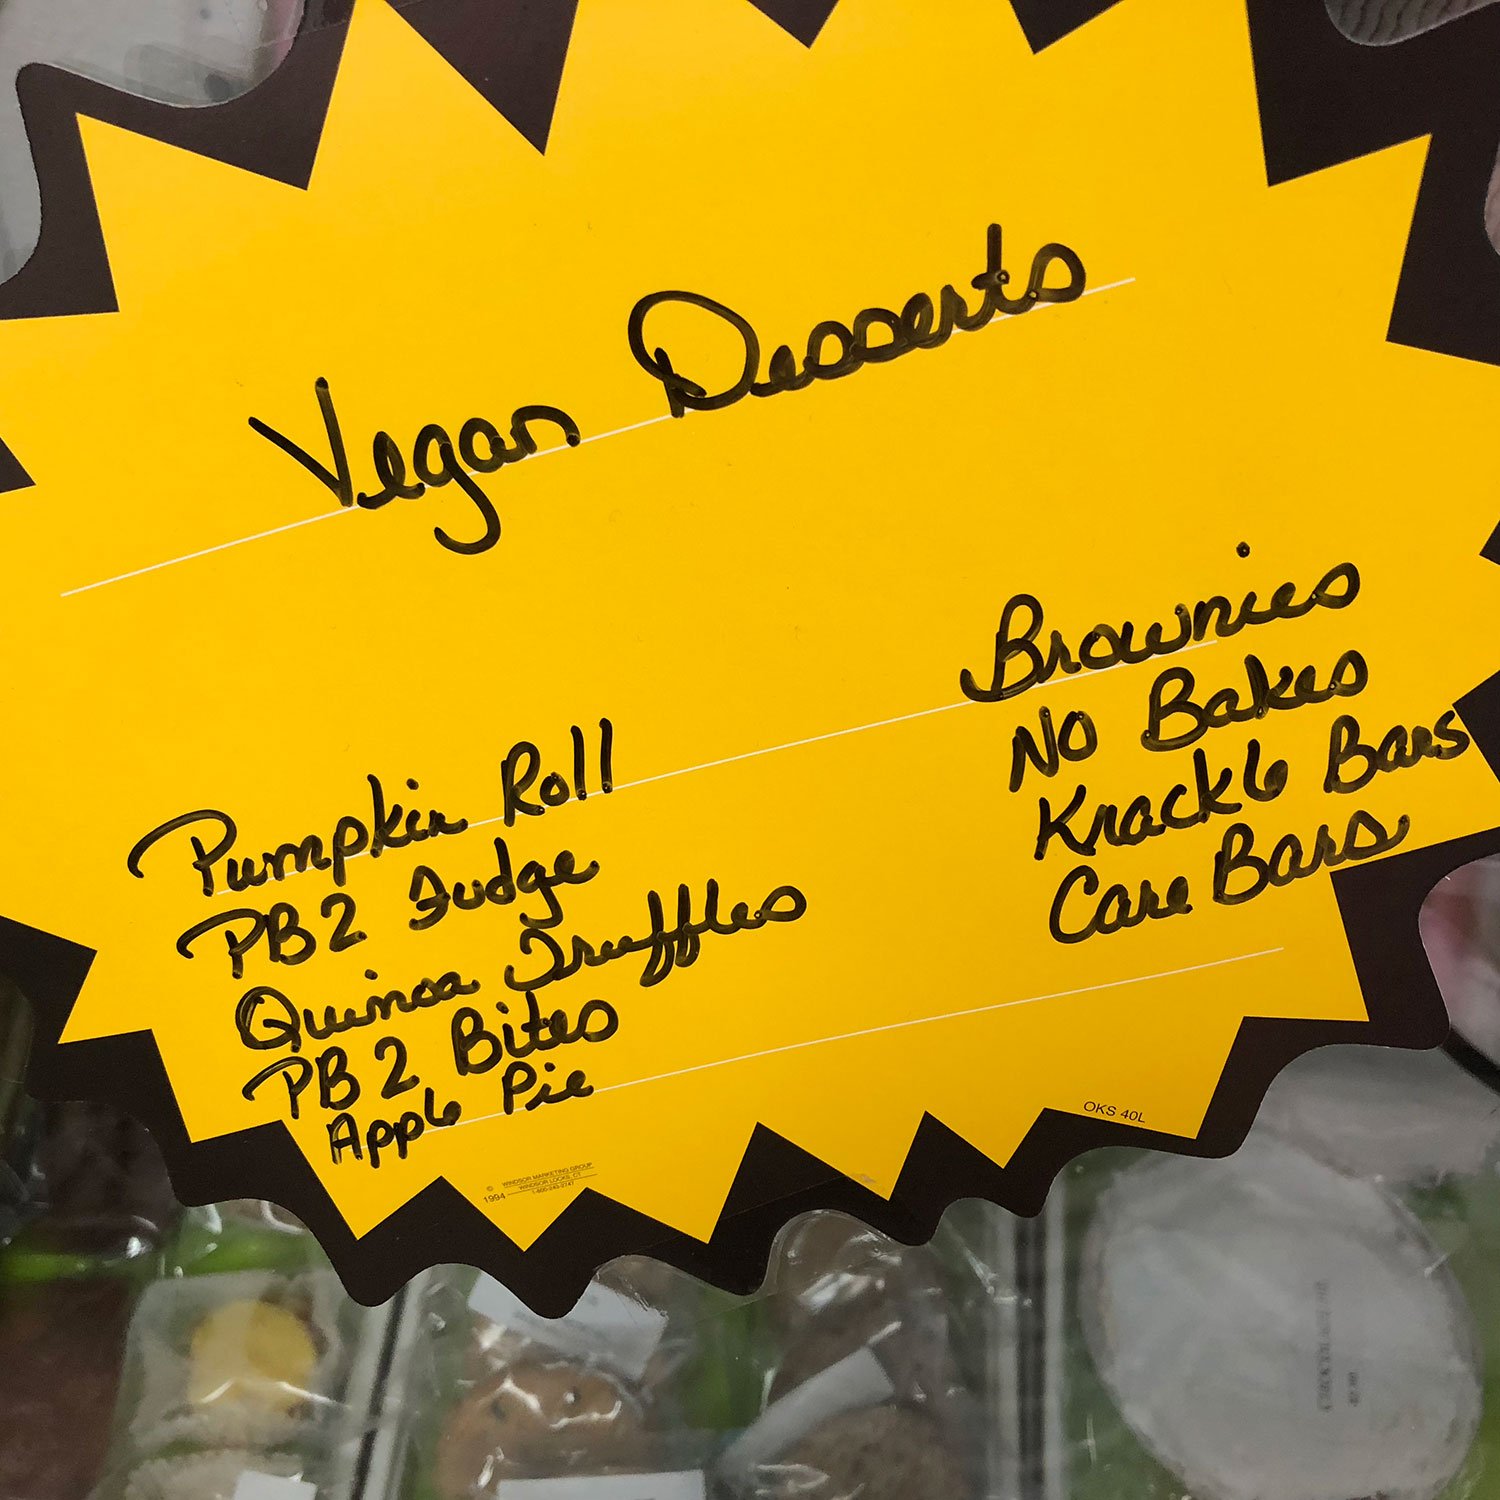 Vegan Desserts
Pumpkin Roll
PB2 Fudge
Quinoa Truffles
PB2 Bites
Apple Pie
Brownies
No Bakes
Knackle Bars
Care Bars
OKS 40L
© WINDSOR MARKETING GROUP
1994 WINDSOR LOCKS, CT